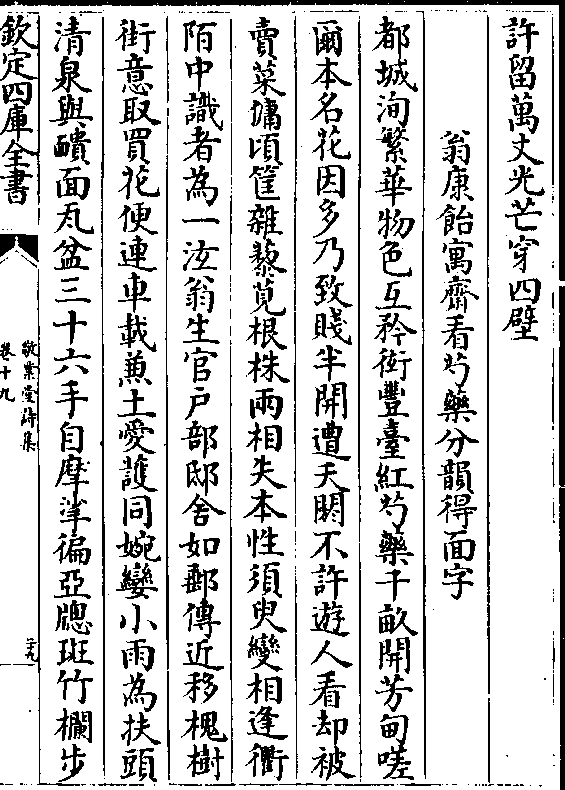 許留萬丈光芒穿四壁
翁康飴寓齋看芍藥分韻得面字
都城洵繁華物色互矜衒豐臺紅芍藥千畝開芳甸嗟
爾本名花因多乃致賤半開遭夭閼不許遊人看却被
賣菜傭頃筐雜藜莧根株兩相失本性須臾變相逢衢
陌中識者為一泫翁生官戶部邸舍如郵傳近移槐樹
街意取買花便連車載兼土愛護同婉孌小雨為扶頭
清泉與靧面瓦盆三十六手自摩挲徧亞牕斑竹欄步
欽定四庫全書
敬業堂詩集
卷十九
二十九